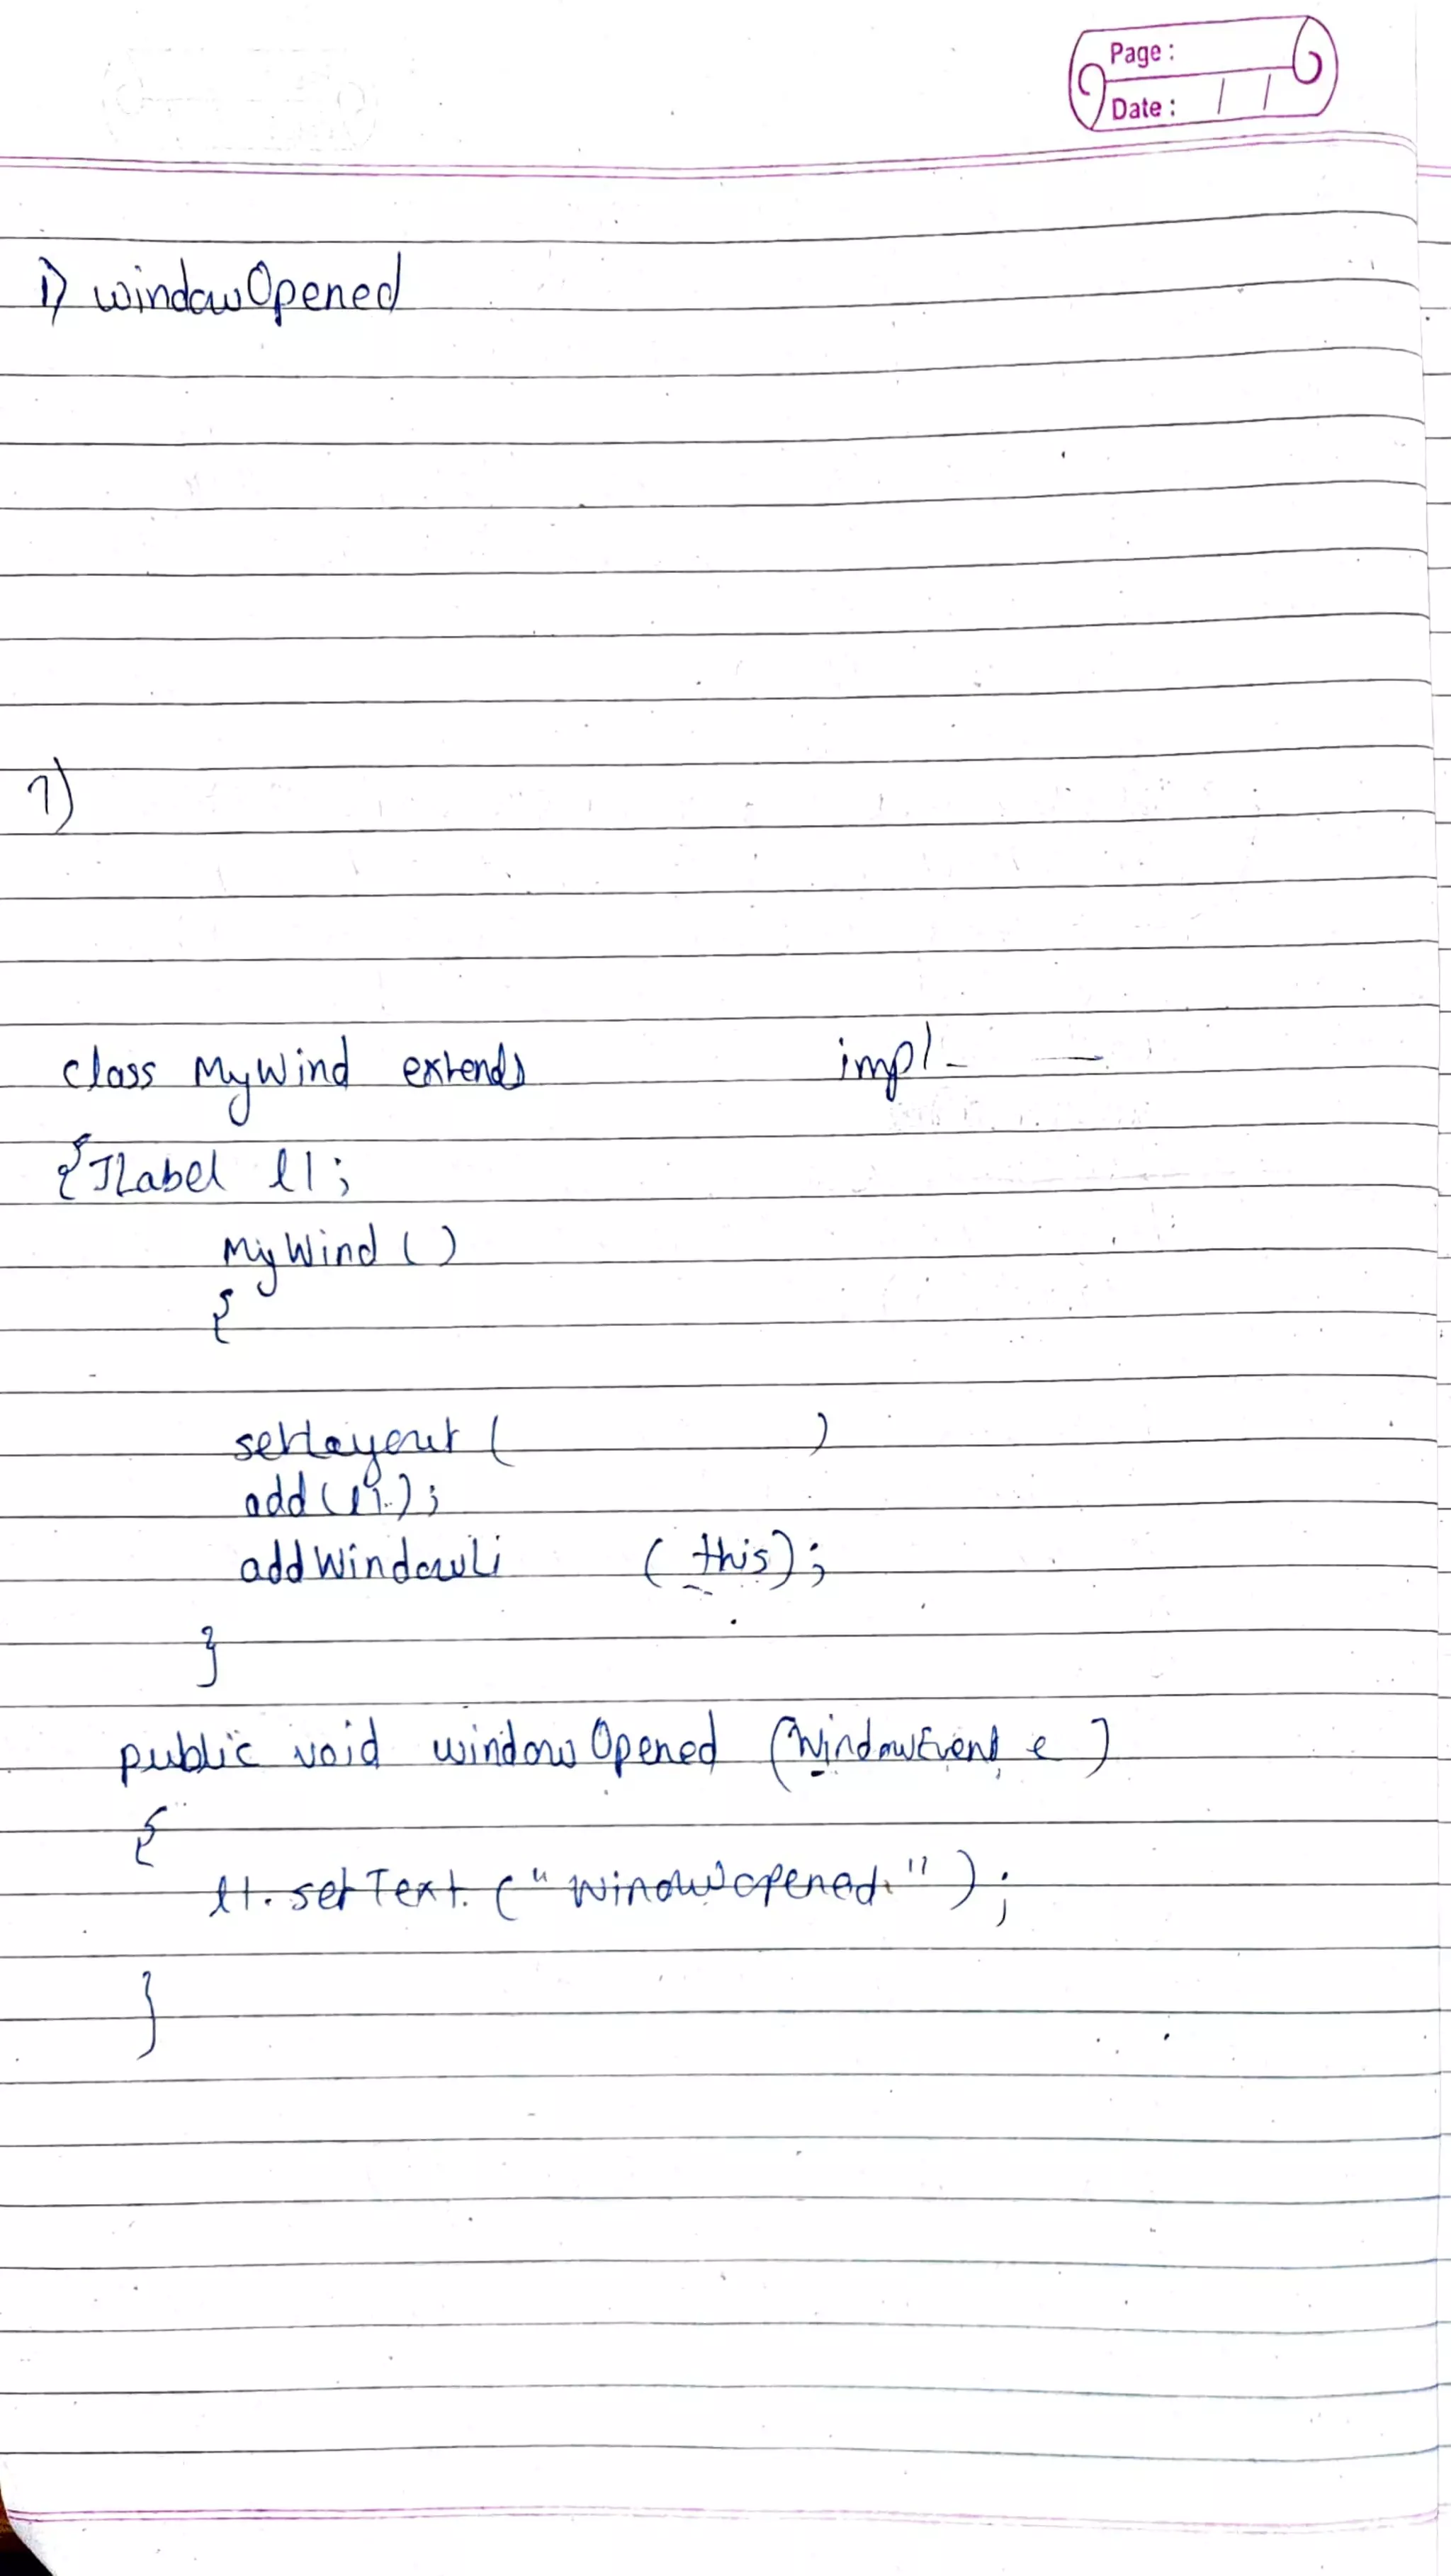 Page :
Date : / /
1) windowOpened
7)
class MyWind extends impl - —
{JLabel l1;
MyWind ()
{
setLayout ( )
add(l1);
addWindowLi (this);
}
public void windowOpened (WindowEvent e)
{
l1.setText ("Windowopened.");
}